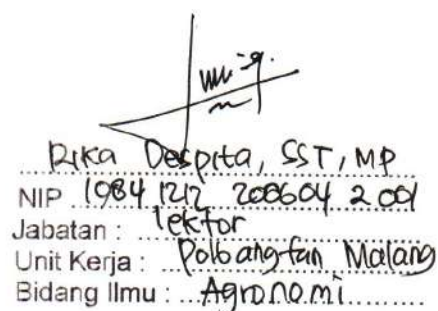 Rika Despita, SST, MP
NIP 19841212 200604 2 001
Jabatan : lektor
Unit Kerja : Polbangtan Malang
Bidang Ilmu : Agronomi